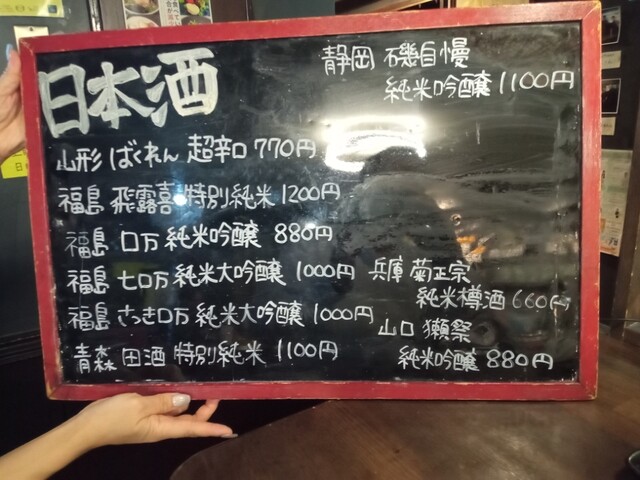 日本酒
山形 ばくれん 超辛口 770円
福島 飛露喜 特別純米 1200円
福島 ロ万 純米吟醸 880円
福島 七ロ万 純米大吟醸 1000円
福島 さっきロ万 純米大吟醸 1000円
青森 田酒 特別純米 1100円
静岡 磯自慢
純米吟醸 1100円
兵庫 菊正宗
純米樽酒 660円
山口 獺祭
純米吟醸 880円